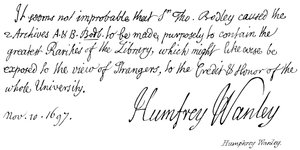 It seems not improbable that Sr. Tho. Bodley caused the
2 Archives A & B. Bodl. to be made, purposely to contain the
greatest Rarities of the Library, which might likewise be
exposed to the view of Strangers, to the Credit & Honor of the
whole University.
Nov. 10. 1697.
Humfrey Wanley
Humphrey Wanley.